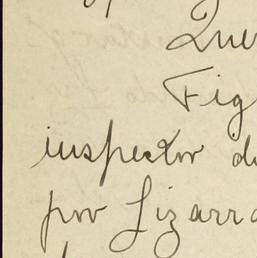 Que
Fig
inspector d
por Lizarra